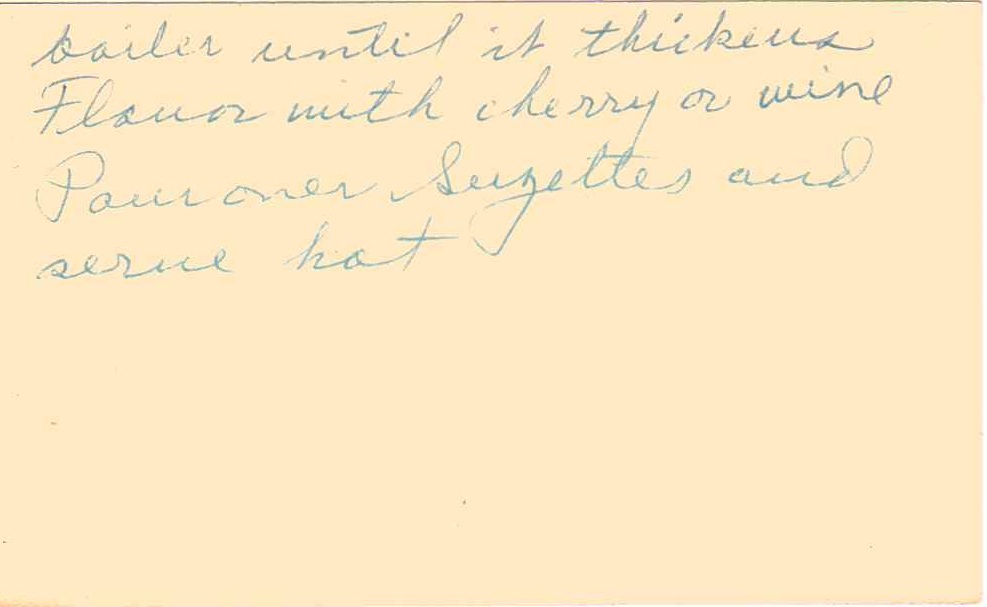 boiler until it thickens
Flavor with cherry or wine
Pour over Suzettes and
serve hot